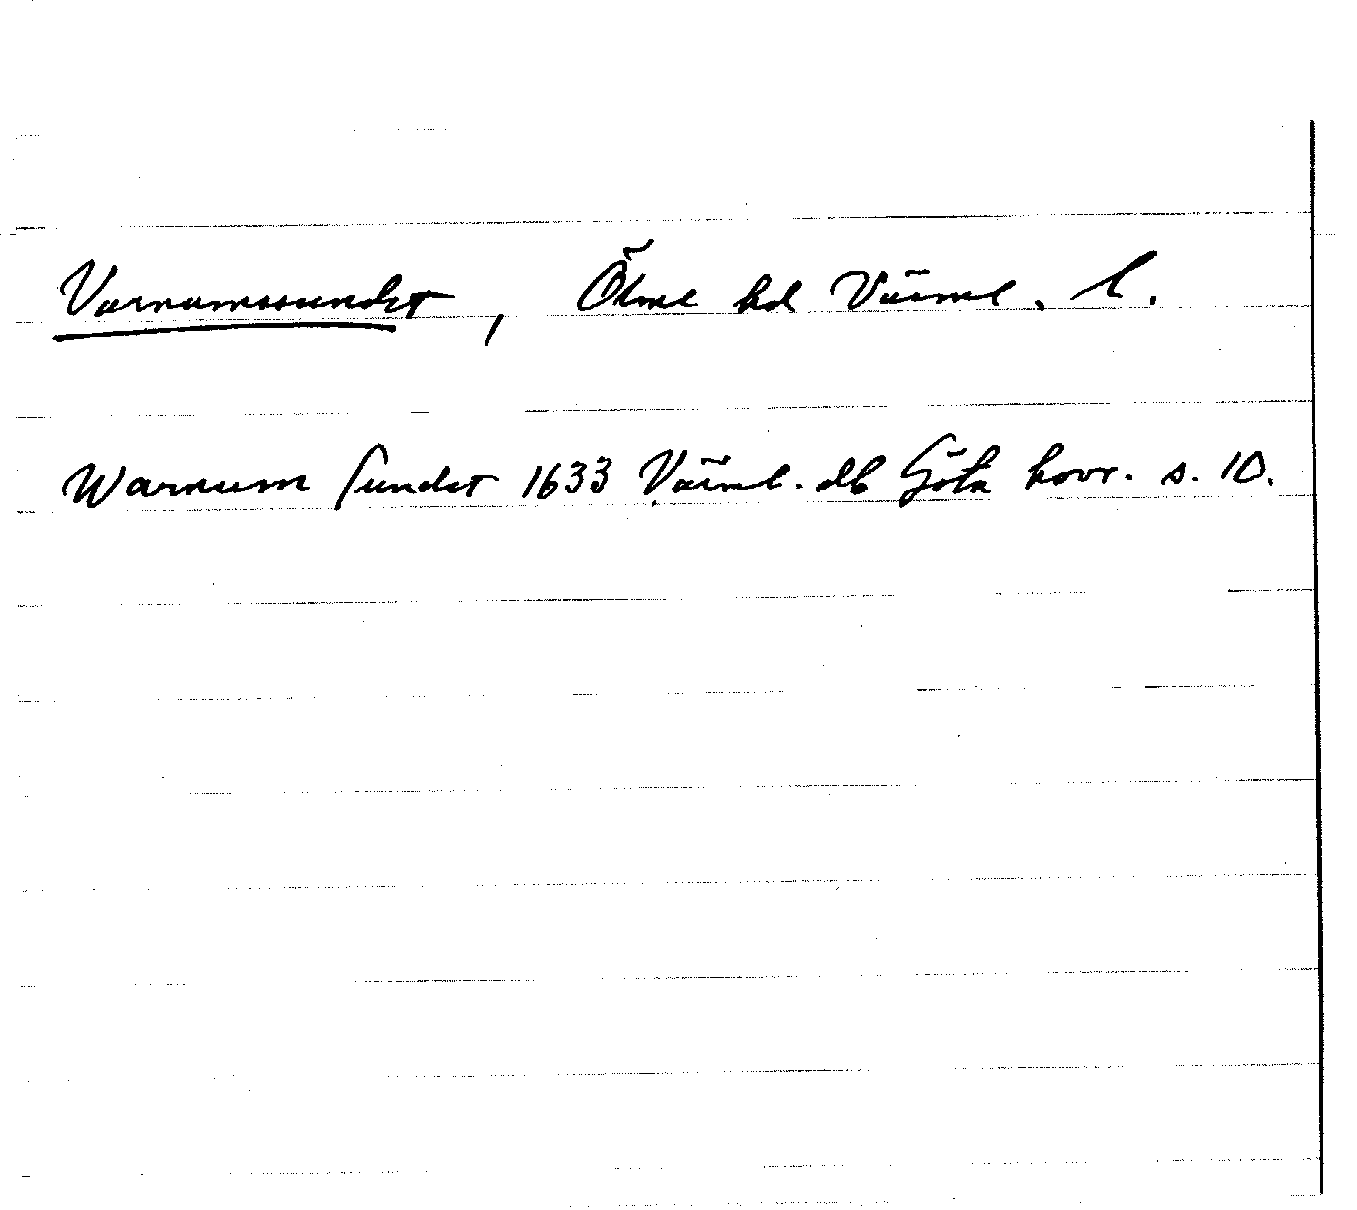 Varnumssundet, Ölme hd Värml. l.
Warnum Sundet 1633 Värml. db Göta hovr. s. 10.